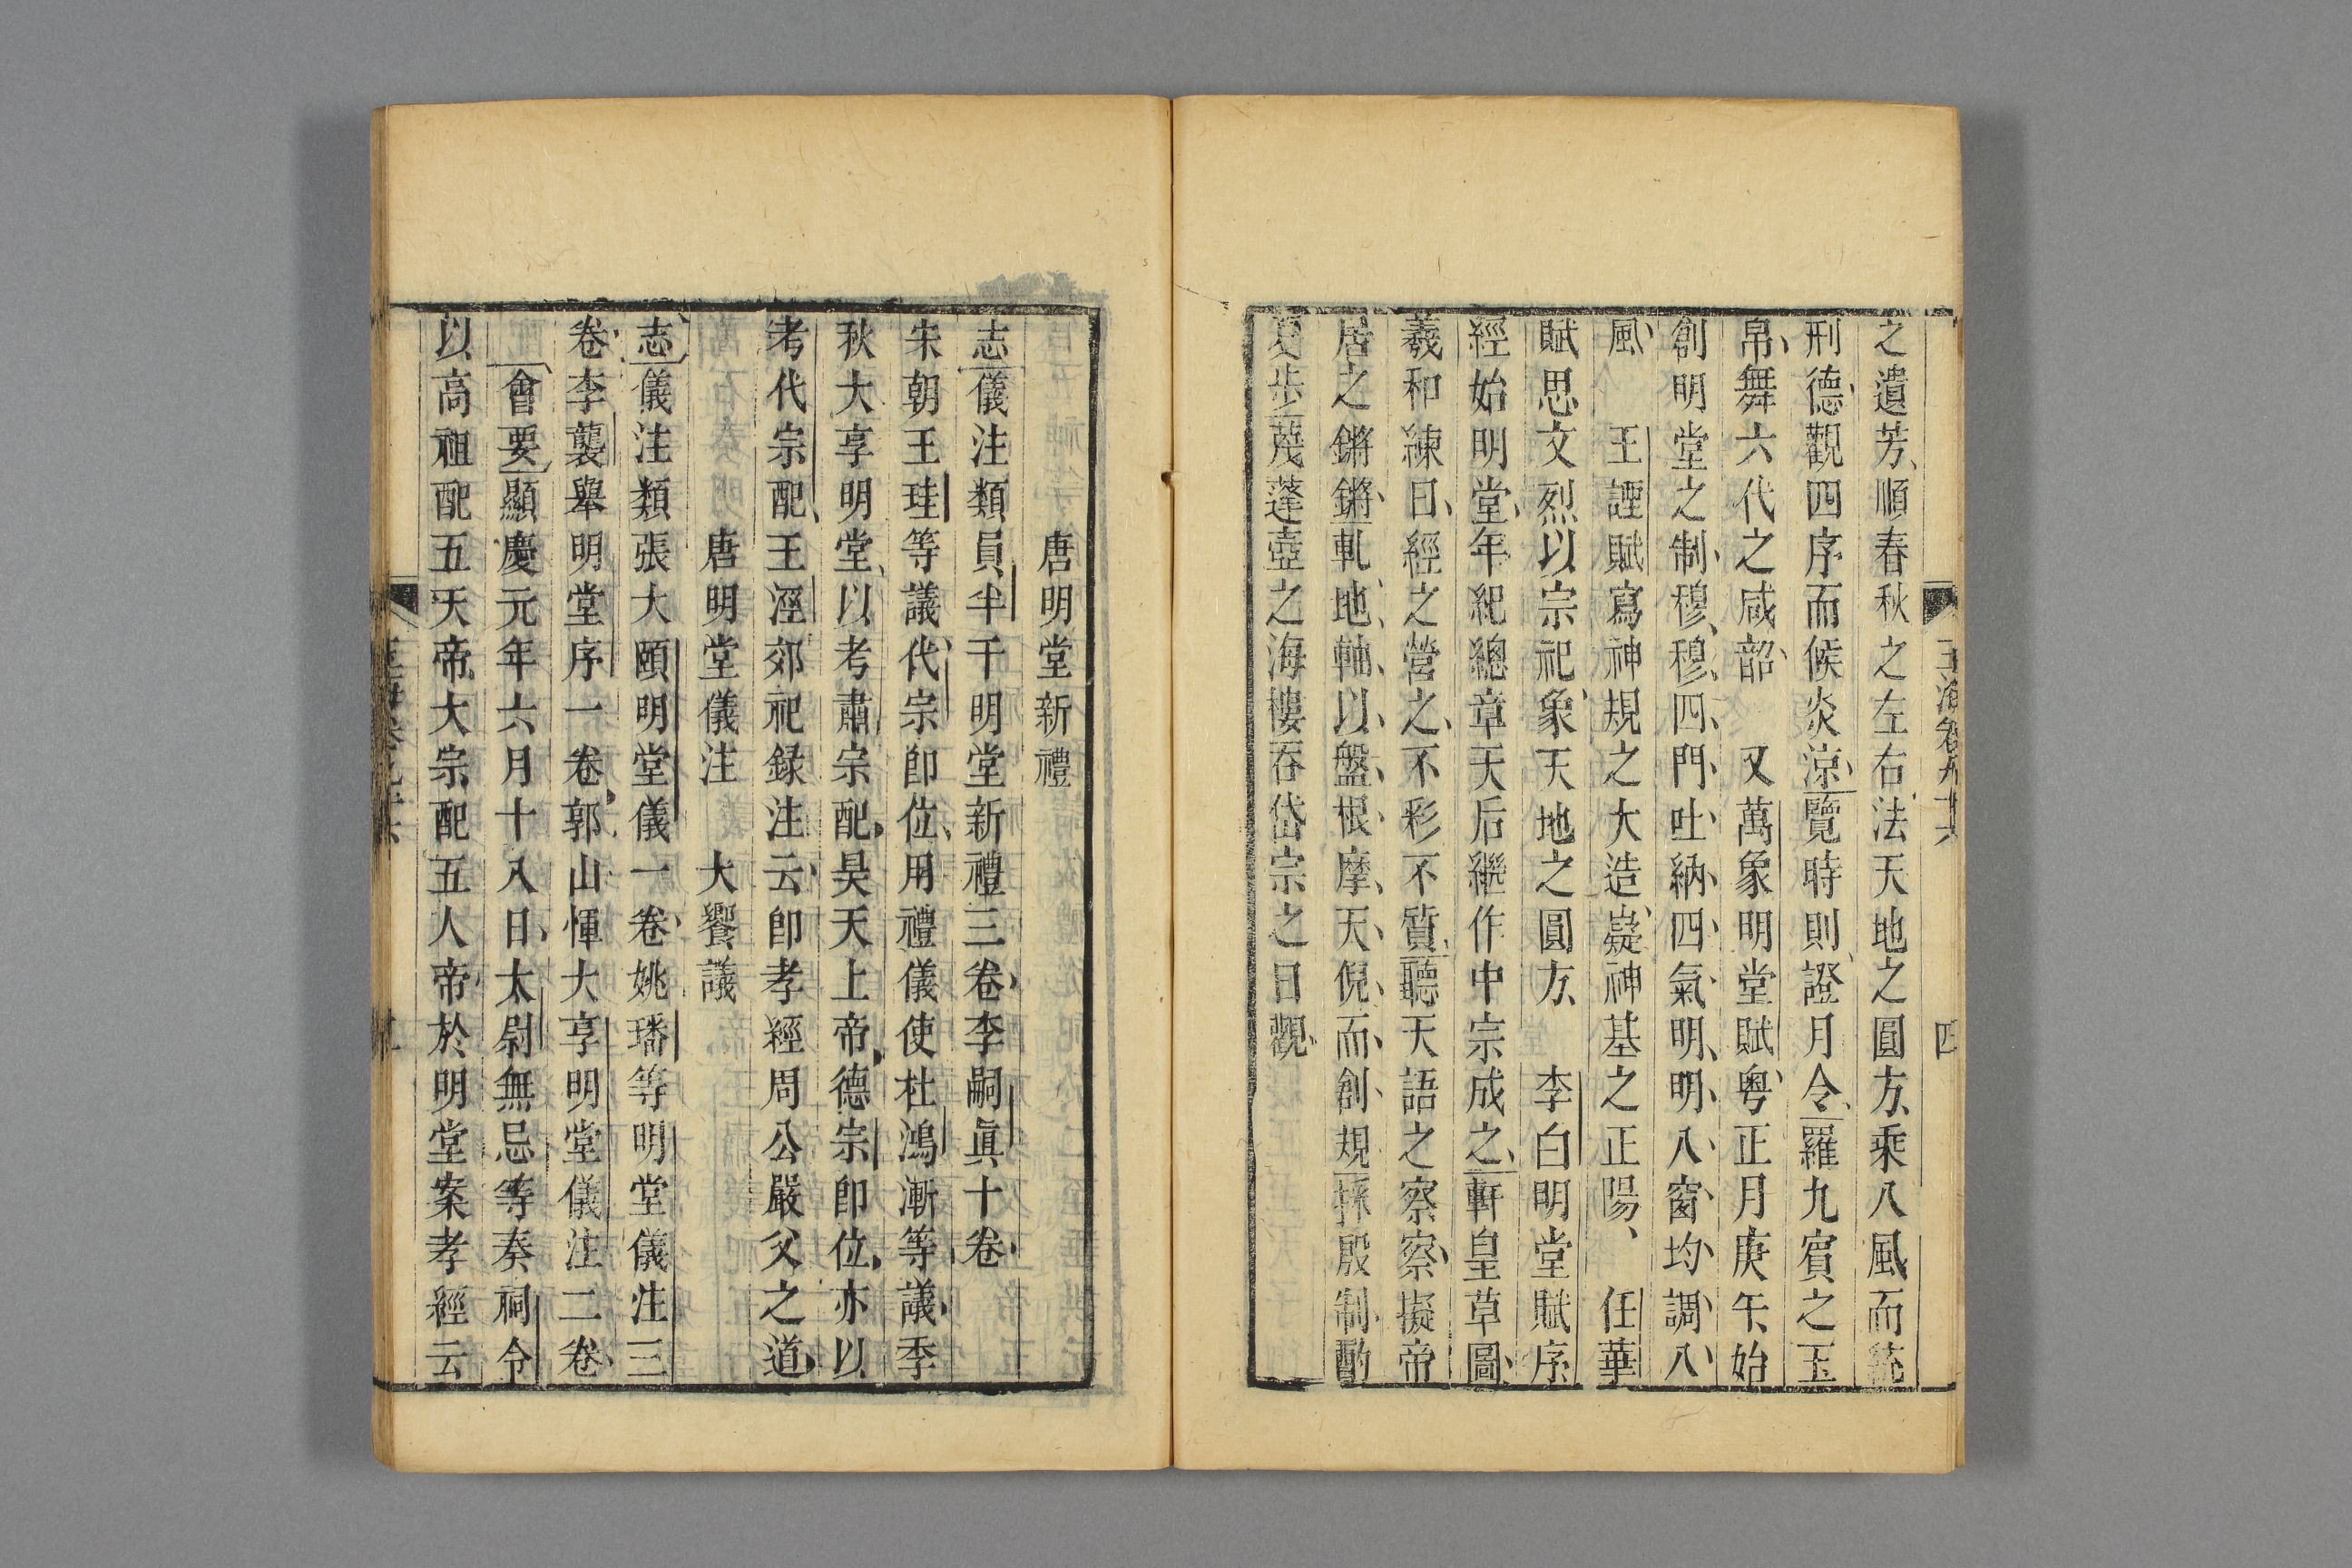 玉海卷九十六
四
之遺芳順春秋之左右法天地之圓方乘八風而統
刑德觀四序而候炎涼覽時則證月令羅九賓之玉
帛舞六代之咸韶　又萬象明堂賦粤正月庚午始
創明堂之制穆穆四門吐納四氣明明八窗均調八
風　王諲賦寫神規之大造嶷神基之正陽　任華
賦思文烈以宗祀象天地之圓方　李白明堂賦序
經始明堂年紀總章天后繼作中宗成之軒皇草圖
羲和練日經之營之不彩不質聽天語之察察擬帝
居之鏘鏘軋地軸以盤根摩天倪而創規採殷制酌
夏步蔑蓬壺之海樓吞岱宗之日觀
唐明堂新禮
志儀注類員半千明堂新禮三卷李嗣眞十卷
宋朝王珪等議代宗卽位用禮儀使杜鴻漸等議季
秋大享明堂以考肅宗配昊天上帝德宗卽位亦以
考代宗配王涇郊祀録注云卽孝經周公嚴父之道
唐明堂儀注　大饗議
志儀注類張大頤明堂儀一卷姚璠等明堂儀注三
卷李襲譽明堂序一卷郭山惲大享明堂儀注二卷
會要顯慶元年六月十八日太尉無忌等奏祠令
以高祖配五天帝太宗配五人帝於明堂案孝經云